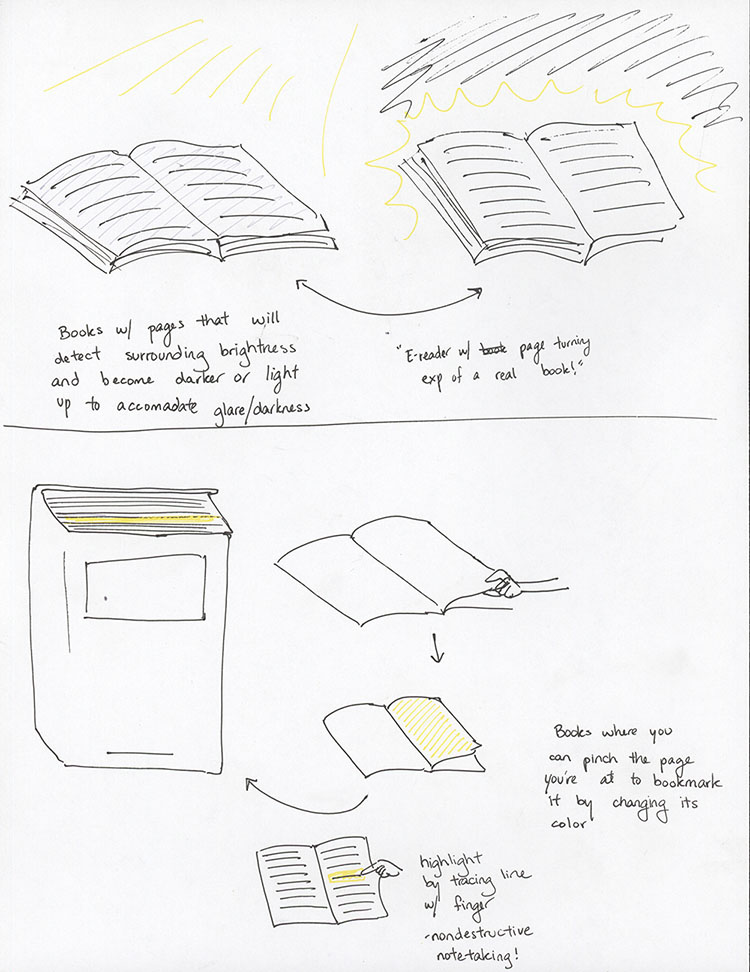 Books w/ pages that will
detect surrounding brightness
and become darker or light
up to accomadate glare/darkness
"E-reader w/ book page turning
exp of a real book!"
Books where you
can pinch the page
you're at to bookmark
it by changing its
color
highlight
by tracing line
w/ finger
-nondestructive
note-taking!